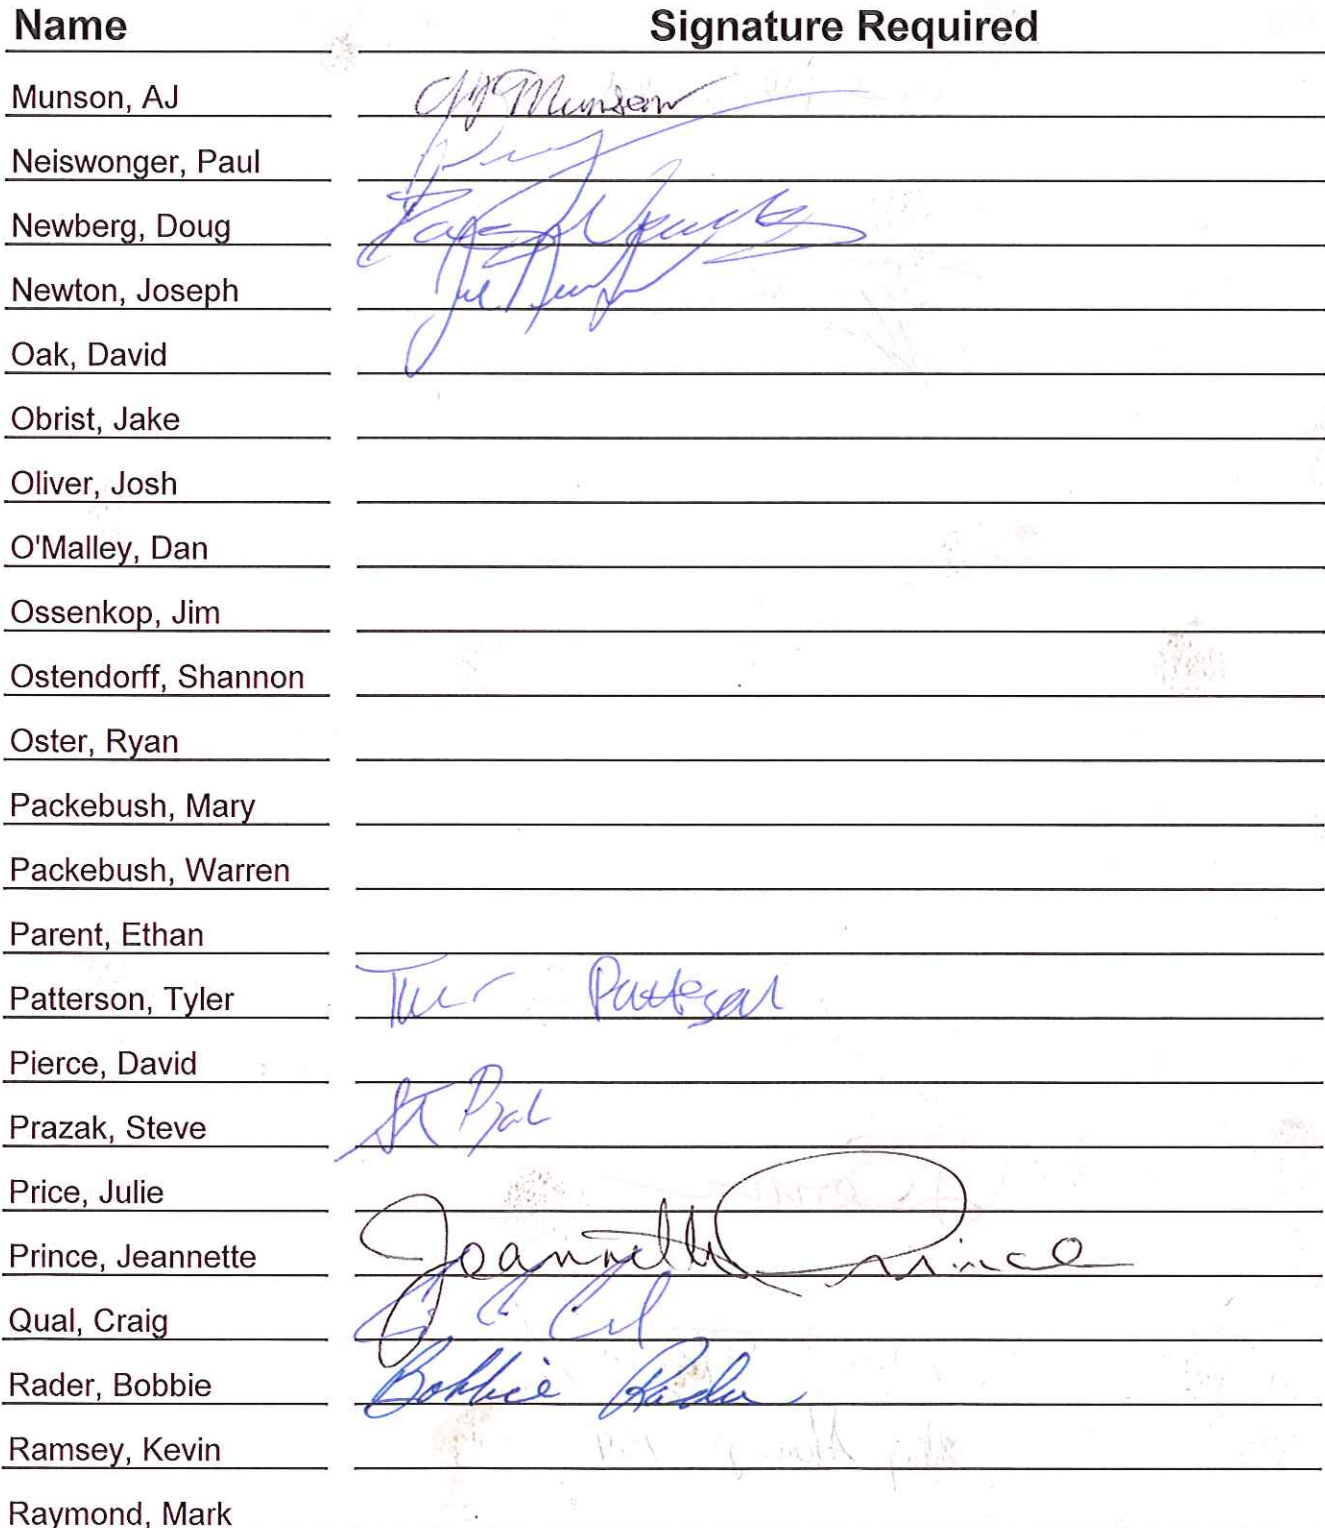 Name Signature Required
Munson, AJ AJ Munson
Neiswonger, Paul
Newberg, Doug
Newton, Joseph
Oak, David
Obrist, Jake
Oliver, Josh
O'Malley, Dan
Ossenkop, Jim
Ostendorff, Shannon
Oster, Ryan
Packebush, Mary
Packebush, Warren
Parent, Ethan
Patterson, Tyler
Pierce, David
Prazak, Steve
Price, Julie
Prince, Jeannette Jeannette Prince
Qual, Craig
Rader, Bobbie Bobbie Rader
Ramsey, Kevin
Raymond, Mark